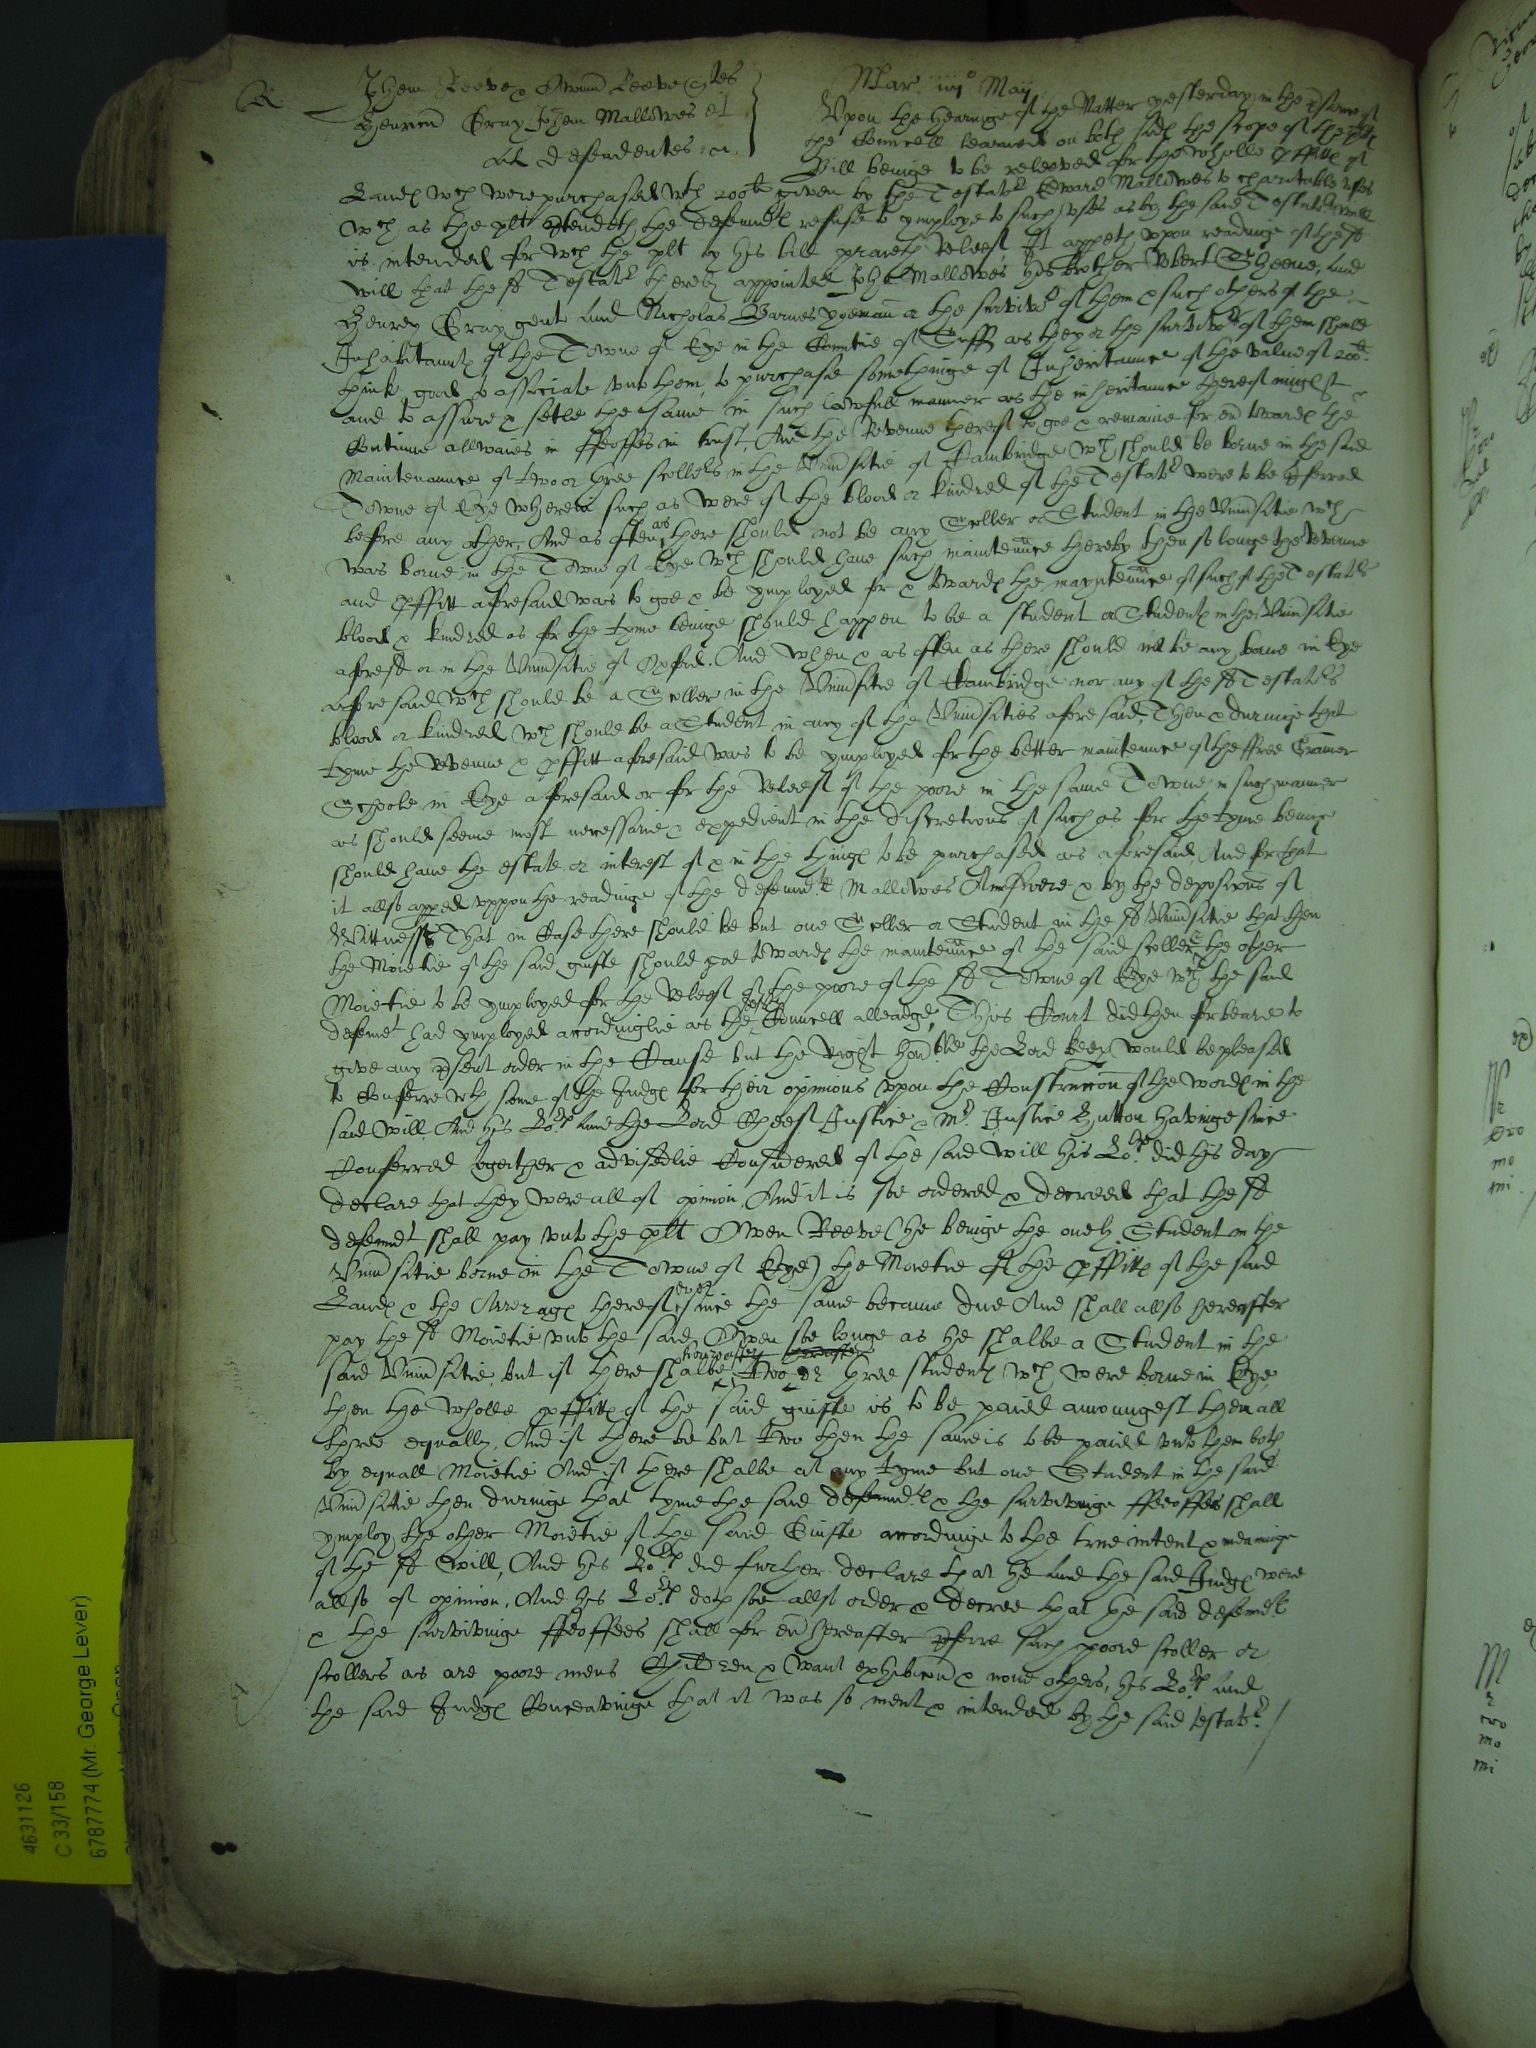 R
Johem Reeve & Owinu Reeve Quer
Henricu Gray Johem Mallowes et
al defendentes
Mar. iiij° Maij
Upon the hearinge of the Matter yesterday in the presence of
the Councell learned on both sides the scope of the plts
Bill beinge to be releeved for the wholle proffitts of
Lands wch were purchased wth 200li given by the Testator Edward Mallowes to charitable uses
wch as the plt pretendeth the defendts refuse to ymploye to such uses as by the said Testators will
is intended for wch the plt by his bill prayeth releef, It appeth uppon readinge of the sd
will that the sd Testator thereby appointed John Mallowes his brother Robert Sheene, and
Henrey Gray gent and Nicholas Barnes yeoman or the survivor of them & such others of the
Inhabitaunts of the Towne of Eye in the Countie of Suff as they or the survivor of them should
think good to associate unto them, to purchase somethinge of Inheritance of the value of 200li
and to assure & setle the same in such lawfull manner as the inheritance thereof might
Continue allwaies in ffeoffes in trust, And the Revenue thereof to goe & remaine for ever towards the
Maintenance of two or three scollers in the Universitie of Cambridge wch should be borne in the said
Towne of Eye wherein such as were of the blood or kindred of the Testator were to be preferred
before any other, And as often as there should not be any Scoller or Student in the Universitie wch
was borne in the Towne of Eye wch should have such maintennce thereby then so longe the Revenue
and proffitt aforesaid was to goe & be ymployed for & towards the mayntennce of such of the Testators
blood & kindred as for the tyme beinge should happen to be a student or Students in the Universitie
aforesd or in the Universitie of Oxford. And when & as often as there should not be any borne in Eye
aforesaid wch should be a Scoller in the Universitie of Cambridge nor any of the sd Testators
blood or kindred wch should be a Student in any of the Universities aforesaid, Then & duringe that
tyme the revenue & proffitt aforesaid was to be ymployed for the better maintennce of the ffree Gramer
Schoole in Eye aforesaid or for the Releef of the poore in the same Towne in such manner
as should seeme most necessarie & expedient in the discretions of such as for the tyme beinge
should have the estate or interest of & in the things to be purchased as aforesaid, And for that
it allso appeed uppon the readinge of the defendt Mallowes Answere & by the depositions of
Wittnesses That in Case there should be but one Scoller or Student in the sd Universitie that then
the Moietie of the said guifte should goe towards the maintennce of the said scoller & the other
Moietie to be ymployed for the Releef of the poore of the sd Towne of Eye wch the said
defendt had ymployed accordinglie as the defts Councell alleadged, This Court did then forbeare to
give any present order in the Cause but the right honble the Lord keep would be pleased
to Conferre wth some of the Judges for their opinions uppon the Construccon of the words in the
said will. And his Lopp and the Lord Cheef Justice & Mr Justice Hutton havinge since
Conferred together & advisedlie Considered of the said will his Lopp did this day
declare that they were all of opinion And it is soe ordered & decreed that the sd
defendt shall pay unto the plt Owen Reeve (he beinge the onely Student in the
Universitie borne in the Towne of Eye) the Moietie of the proffitts of the said
Lands & the Arrerages thereof ever since the same became due And shall allso hereafter
pay the sd Moietie unto the said Owen soe longe as he shalbe a Student in the
said Universitie, but if there shalbe hereafter two or three students wch were borne in Eye
then the wholle proffitts of the said guifte is to be paied amoungest them all
three equally, And if there be but two then the same is to be paied unto them both
by equall Moietie And if there shalbe at any tyme but one Student in the said
Universitie then duringe that tyme the said defendts & the survivinge ffeoffees shall
ymploy the other Moietie of the said Guifte accordinge to the true intent & meaninge
of the sd will, And his Lopp did further declare that he and the said Judges were
allso of opinion, And his Lopp doth soe allso order & decree that the said defendt
& the survivinge ffeoffees shall for ever hereafter preferre such poore scoller or
scollers as are poore mens Children & want exhibicon & none others, his Lopp and
the said Judges Conceavinge that it was so ment & intended by the said testator.
4631126
C 33/158
6787774 (Mr. George Lever)